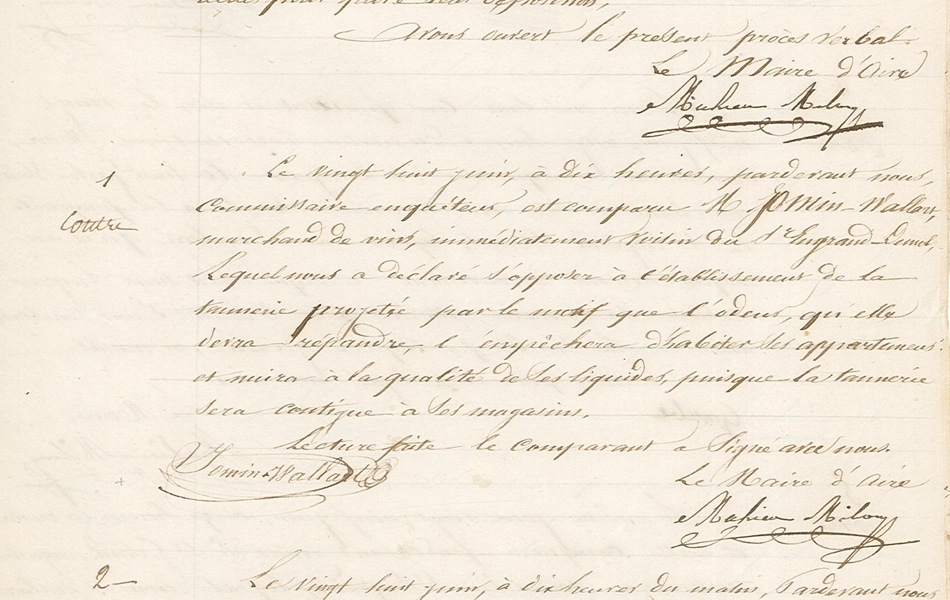 pour faire leur déposition,
Avons ouvert le présent procès verbal.
Le Maire d'Aire
Mahieu Milon
1
Le vingt huit juin, à dix heures, pardevant nous,
Contre
Commissaire enquêteur, est comparu M Jomin-Wallart,
marchand de vins, immédiatement voisin du Sr Engrand
Lequel nous a déclaré s'opposer à l'établissement de la
tannerie projetée par le motif que l'odeur, qu'elle
devra répandre, l'empêchera d'habiter ses appartemens
et nuira à la qualité de ses liquides, puisque la tannerie
sera contigue a ses magasins.
Lecture faite le comparant a signé avec nous.
Jomin-Wallart
Le Maire d'Aire
Mahieu Milon
2
Le vingt huit juin, à dix heures du matin, Pardevant nous